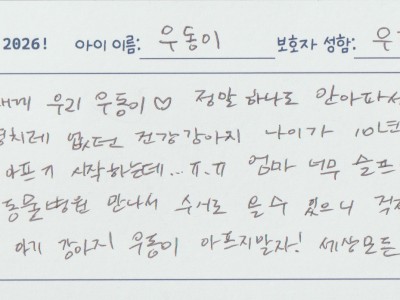 2026! 아이 이름: 우동이 보호자 성함: 우
내게 우리 우동이♡ 정말 하나도 안아파서
병치레 없던 건강강아지 나이가 10년
아프기 시작하는데...ㅠ.ㅠ 엄마 너무 슬프
동물병원 만나서 수서로 믈 수 있으니 걱
아기 강아지 우동이 아프지말자! 세상모든